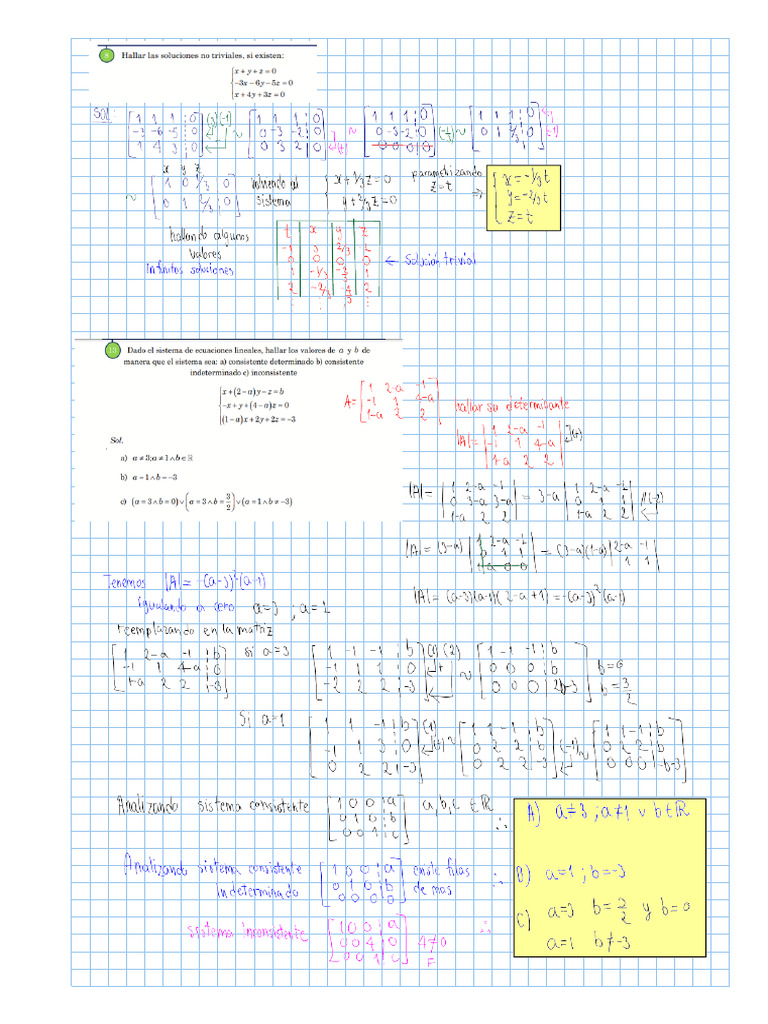 8 Hallar las soluciones no triviales, si existen:
x + y + z = 0
−3x − 6y − 5z = 0
x + 4y + 3z = 0
Sol:
[1 1 1 | 0; -3 -6 -5 | 0; 1 4 3 | 0] (3)(-1) ~ [1 1 1 | 0; 0 -3 -2 | 0; 0 3 2 | 0] ~ [1 1 1 | 0; 0 -3 -2 | 0; 0 0 0 | 0] (-1/3) ~ [1 1 1 | 0; 0 1 2/3 | 0]
x y z
~ [1 0 1/3 | 0; 0 1 2/3 | 0] volviendo al sistema { x + 1/3 z = 0; y + 2/3 z = 0 parametrizando z=t ⇒ { x = -1/3 t; y = -2/3 t; z = t
hallando algunos
valores
infinitas soluciones
t x y z
0 0 0 0 ← Solución trivial
1 -1/3 -2/3 1
2 -2/3 -4/3 2
13 Dado el sistema de ecuaciones lineales, hallar los valores de a y b de
manera que el sistema sea: a) consistente determinado b) consistente
indeterminado c) inconsistente
x + (2 − a)y − z = b
−x + y + (4 − a)z = 0
(1 − a)x + 2y + 2z = −3
Sol.
a) a ≠ 3; a ≠ 1 ∧ b ∈ ℝ
b) a = 1 ∧ b = −3
c) (a = 3 ∧ b = 0) ∨ (a = 3 ∧ b = 3/2) ∨ (a = 1 ∧ b ≠ −3)
A = [1 2-a -1; -1 1 4-a; 1-a 2 2]
hallar su determinante
|A| = |1 2-a -1; -1 1 4-a; 1-a 2 2|
|A| = |1 2-a -1; 0 3-a 3-a; 1-a 2 2| = 3-a |1 2-a -1; 0 1 1; 1-a 2 2| (-2)
|A| = (3-a) |1 2-a -1; 0 1 1; 1-a 0 0| = (3-a)(1-a) |2-a -1; 1 1|
|A| = (a-3)(a-1)(2-a+1) = -(a-3)²(a-1)
Tenemos |A| = -(a-3)²(a-1)
igualando a cero a=3 ; a=1
reemplazando en la matriz
[1 2-a -1 | b; -1 1 4-a | 0; 1-a 2 2 | -3] si a=3 [1 -1 -1 | b; -1 1 1 | 0; -2 2 2 | -3] (1)(2) ~ [1 -1 -1 | b; 0 0 0 | b; 0 0 0 | 2b-3] b=0 b=3/2
Si a=1 [1 1 -1 | b; -1 1 3 | 0; 0 2 2 | -3] (1) ~ [1 1 -1 | b; 0 2 2 | b; 0 2 2 | -3] (-1) ~ [1 1 -1 | b; 0 2 2 | b; 0 0 0 | -b-3]
Analizando sistema consistente [1 0 0 | a; 0 1 0 | b; 0 0 1 | c] a, b, c ∈ ℝ ∴
Analizando sistema consistente
indeterminado [1 0 0 | a; 0 1 0 | b; 0 0 0 | 0] filas de mas ∴
sistema inconsistente [1 0 0 | a; 0 0 4 | 0; 0 0 1 | c] 4≠0 F ∴
A) a≠3 ; a≠1 ∨ b∈ℝ
B) a=1 ; b=-3
C) a=3 b=2/2 y b=0
a=1 b≠-3